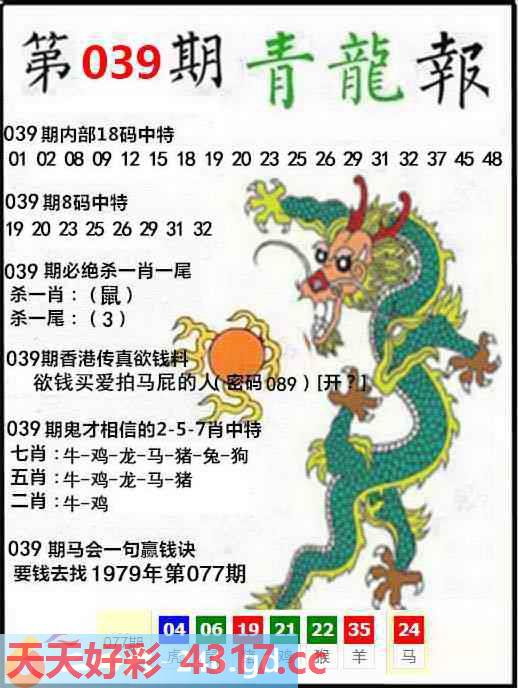 第039期青龍報
039期内部18码中特
01 02 08 09 12 15 18 19 20 23 25 26 29 31 32 37 45 48
039期8码中特
19 20 23 25 26 29 31 32
039 期必绝杀一肖一尾
杀一肖:(鼠)
杀一尾:(3)
039期香港传真欲钱料
欲钱买爱拍马屁的人(密码089)[开?]
039期鬼才相信的2-5-7肖中特
七肖:牛-鸡-龙-马-猪-兔-狗
五肖:牛-鸡-龙-马-猪
二肖:牛-鸡
039 期马会一句赢钱诀
要钱去找1979年第077期
04 06 19 21 22 35 24
077期 虎 鼠 猪 鸡 猴 羊 马
天天好彩 4317.cc